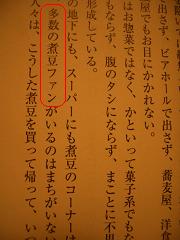 出さず、ビアホールで出さず、蕎麦屋、洋食
屋でもお目にかかれない。
はお惣菜ではなく、かといって菓子系でもな
もならず、腹のタシにならず、まことに不思
形成している。
の地下にも、スーパーにも煮豆のコーナーは
多数の煮豆ファンがいるのはまちがいない
人々は、こうした煮豆を買って帰って、いつ